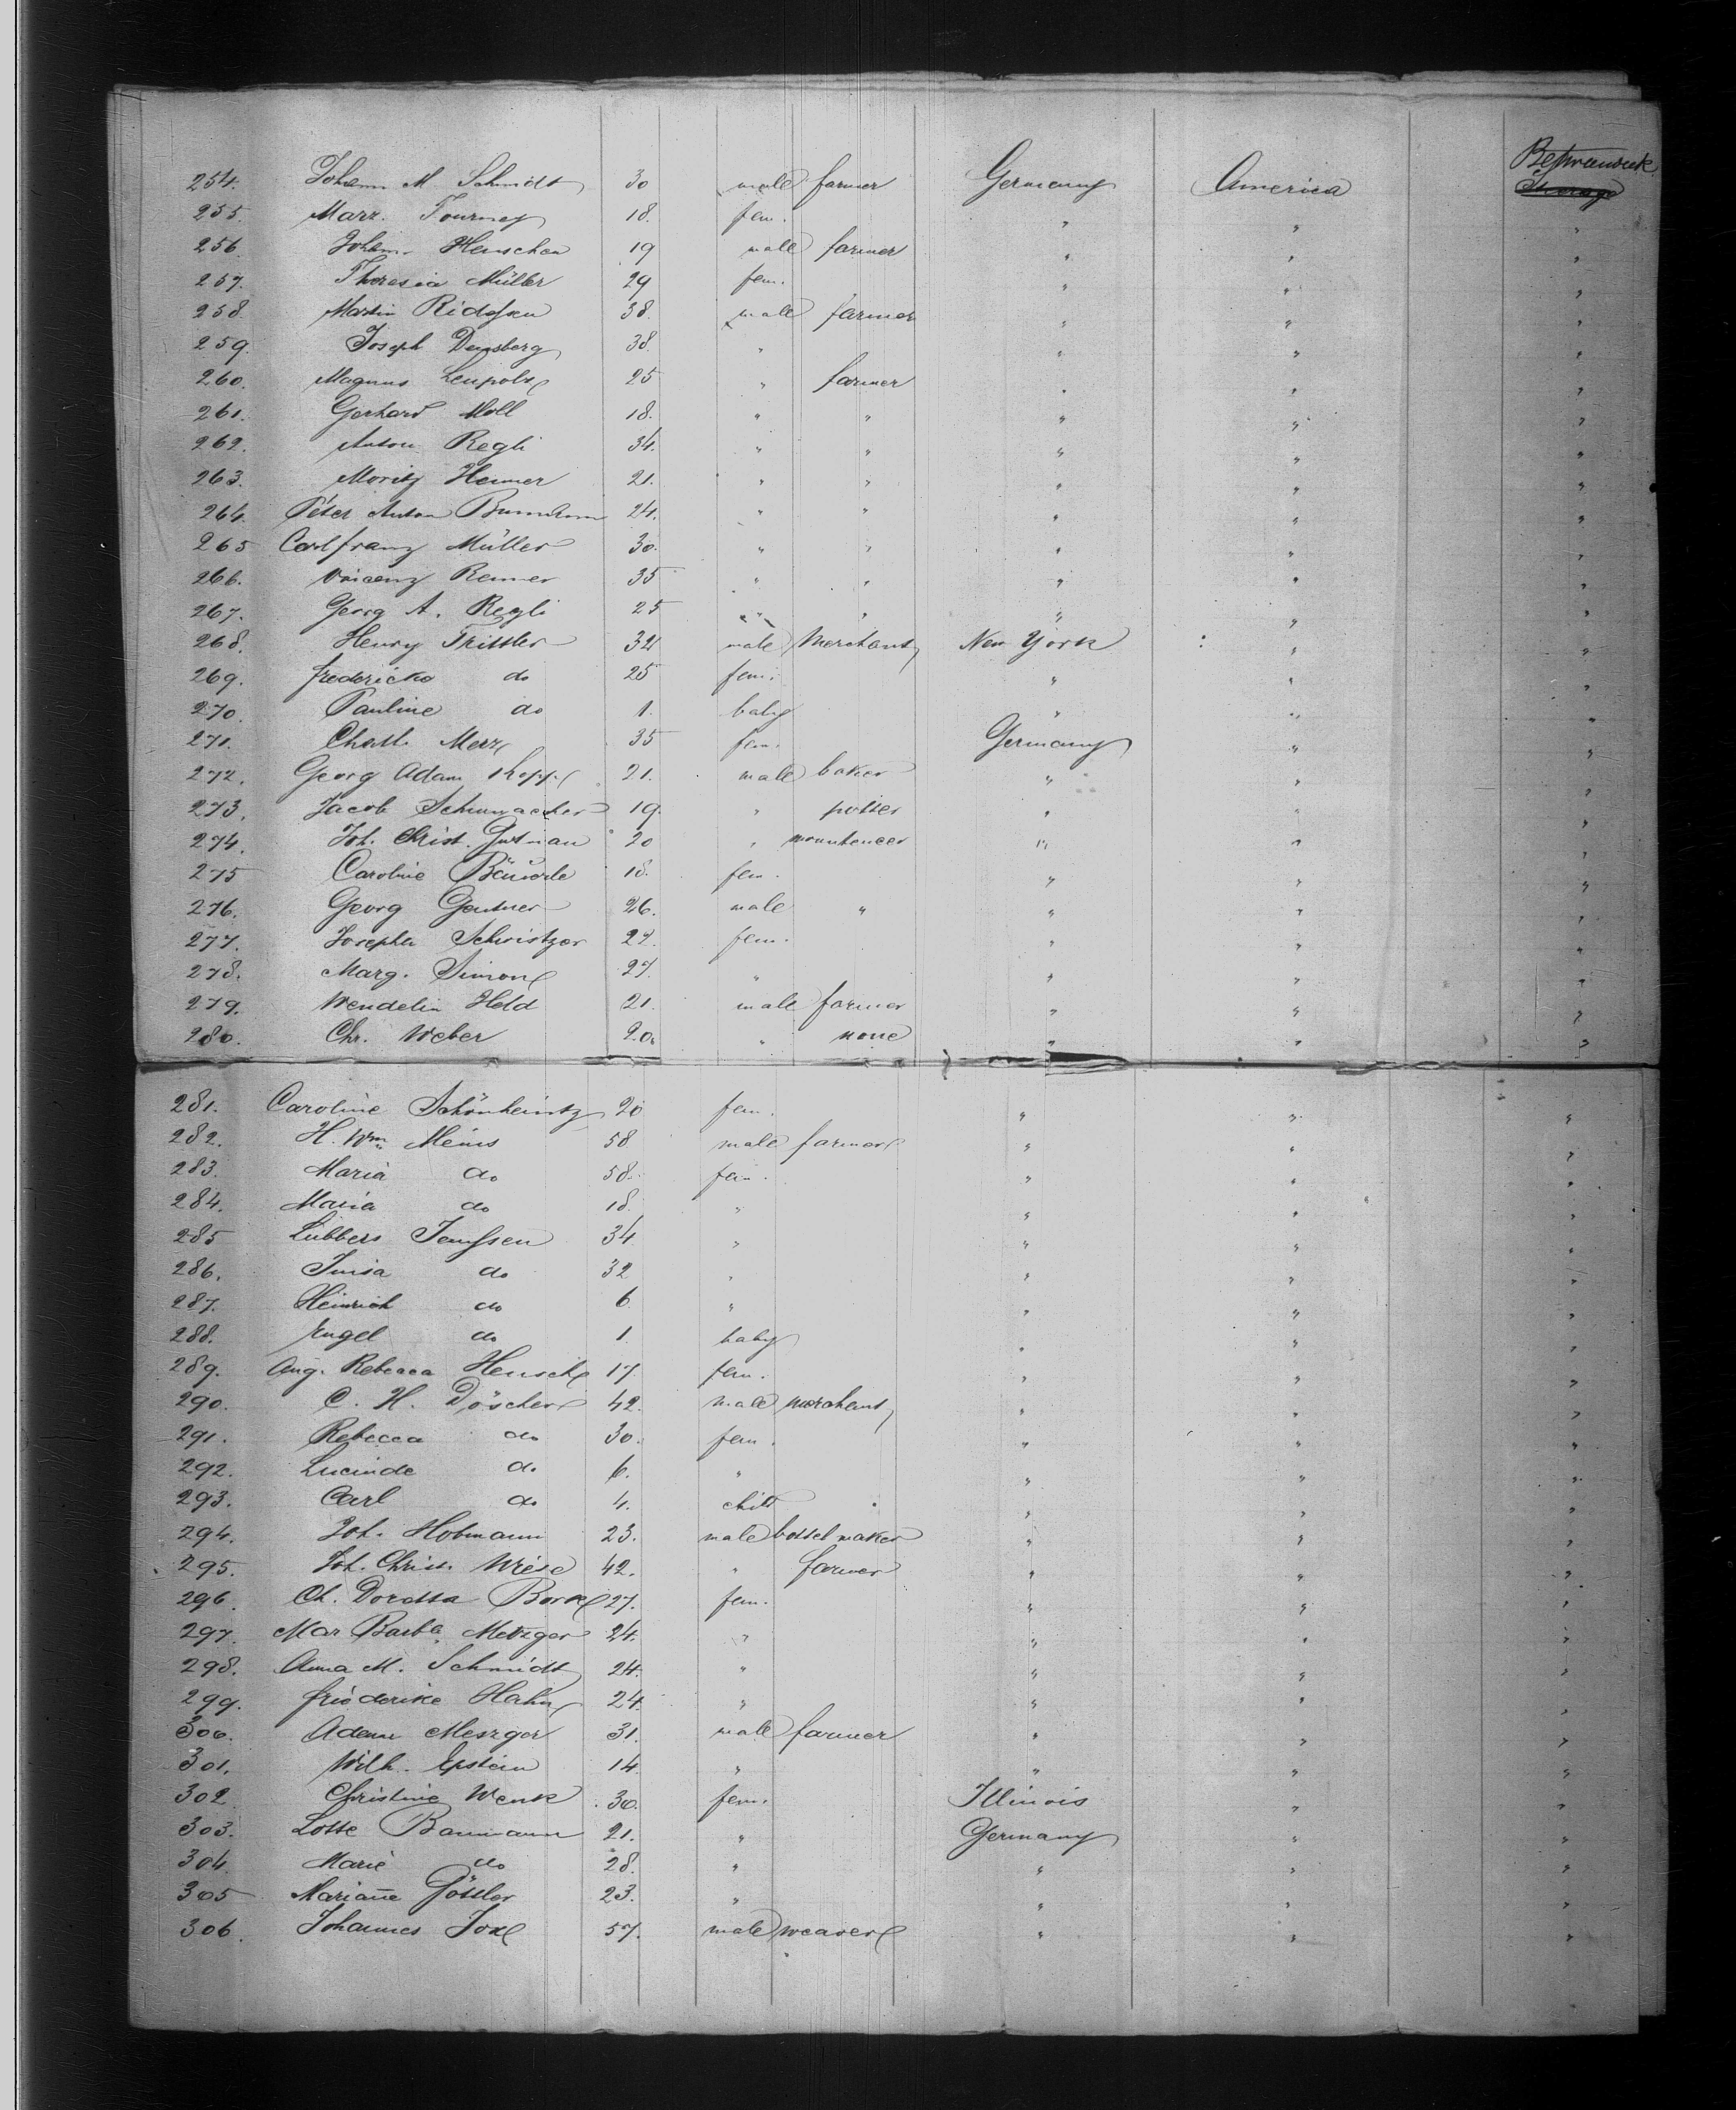 254. Johann M Schmidt 30 male farmer Germany America Betweendeck
255. Marz. Tourney 18. fem. " " "
256. Johann Henschen 19 male farmer " " "
257. Theresia Müller 29 fem. " " "
258. Martin 38. male farmer " " "
259. Joseph Densberg 38. " " " "
260. Magnus Leupolz 25 " farmer " " "
261. Gerhard Moll 18. " " " " "
262. Anton Regli 34. " " " " "
263. Moritz Hemer 21. " " " " "
264. Peter Anton 24. " " " " "
265 Carl franz Müller 30. " " " " "
266. Vincenz Renner 35 " " " " "
267. Georg A. Regli 25 " " " " "
268. Henry Trittler 32 male Merchant New York : " "
269. fredericke do 25 fem. " " "
270. Pauline do 1. baby " " "
271. Charl. Merz 35 fem. Germany " "
272. Georg Adam Kopp 21. male baker " " "
273. Jacob Schumacher 19. " potter " " "
274. Joh. Christ. Gutman 20 " " " "
275 Caroline Bäuerle 18. fem. " " "
276. Georg Gentner 26. male " " " "
277. Josepha Schwitzer 27. fem. " " "
278. Marg. Simon 27. " " " "
279. Wendelin Held 21. male farmer " " "
280. Chr. Weber 20. " none " " "
281. Caroline Schönheintz 20 fem. " " "
282. H. Wm Meins 58 male farmer " " "
283. Maria do 58. fem. " " "
284. Maria do 18. " " " "
285 Lübbers Janssen 34 " " " "
286. do 32 " " " "
287. Heinrich do 6 " " " "
288. Engel do 1. baby " " "
289. Aug. Rebecca Hensch 17. fem. " " "
290. C. H. Döscher 42. male merchant " " "
291. Rebecca do 30. fem. " " "
292. Lucinde do 6. " " " "
293. Carl do 4. child " " "
294. Joh. Hobmann 23. male bottel maker " " "
295. Joh. Christ. Wiese 42. " farmer " " "
296. Ch. Dorotta Bork 27. fem. " " "
297. Mar Barba Metzger 24. " " " "
298. Anna M. Schmidt 24. " " " "
299. friederike Hahn 24 " " " "
300. Adam Meszger 31. male farmer " " "
301. Wilh. Epstein 14 " " " "
302 Christine Wenk 30. fem. Illinois " "
303. Lotte Baumann 21. " Germany " "
304. Marie do 28. " " " "
305 Mariañe Göttler 23. " " " "
306. Johannes Jox 57. male weaver " " "